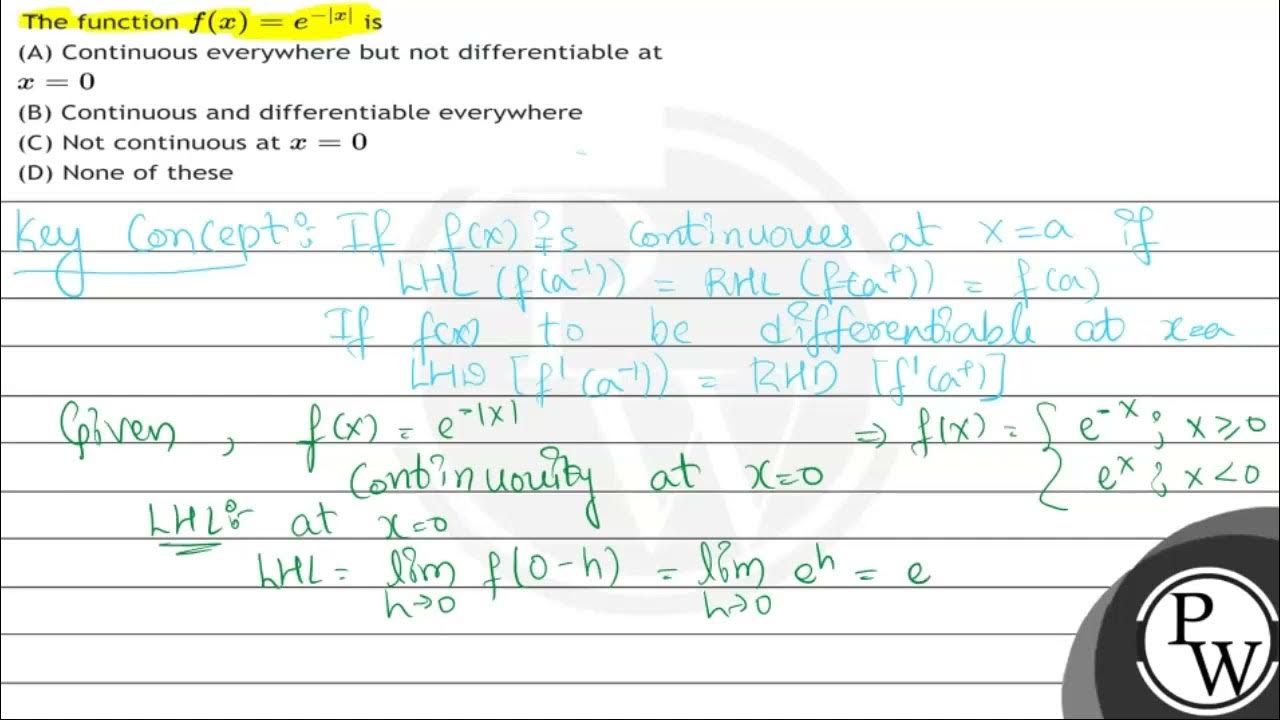 The function f(x) = e^{-|x|} is
(A) Continuous everywhere but not differentiable at
x = 0
(B) Continuous and differentiable everywhere
(C) Not continuous at x = 0
(D) None of these
Key Concept:- If f(x) is continuoues at x=a if
LHL (f(a⁻¹)) = RHL (f(a⁺)) = f(a)
If f(x) to be differentiable at x=a
LHD [f'(a⁻¹)) = RHD [f'(a⁺)]
Given, f(x) = e^{-|x|} ⇒ f(x) = { e^{-x} ; x ≥ 0
e^{x} ; x < 0
Continuouity at x=0
LHL:- at x=0
LHL = lim h→0 f(0-h) = lim h→0 e^h = e
PW